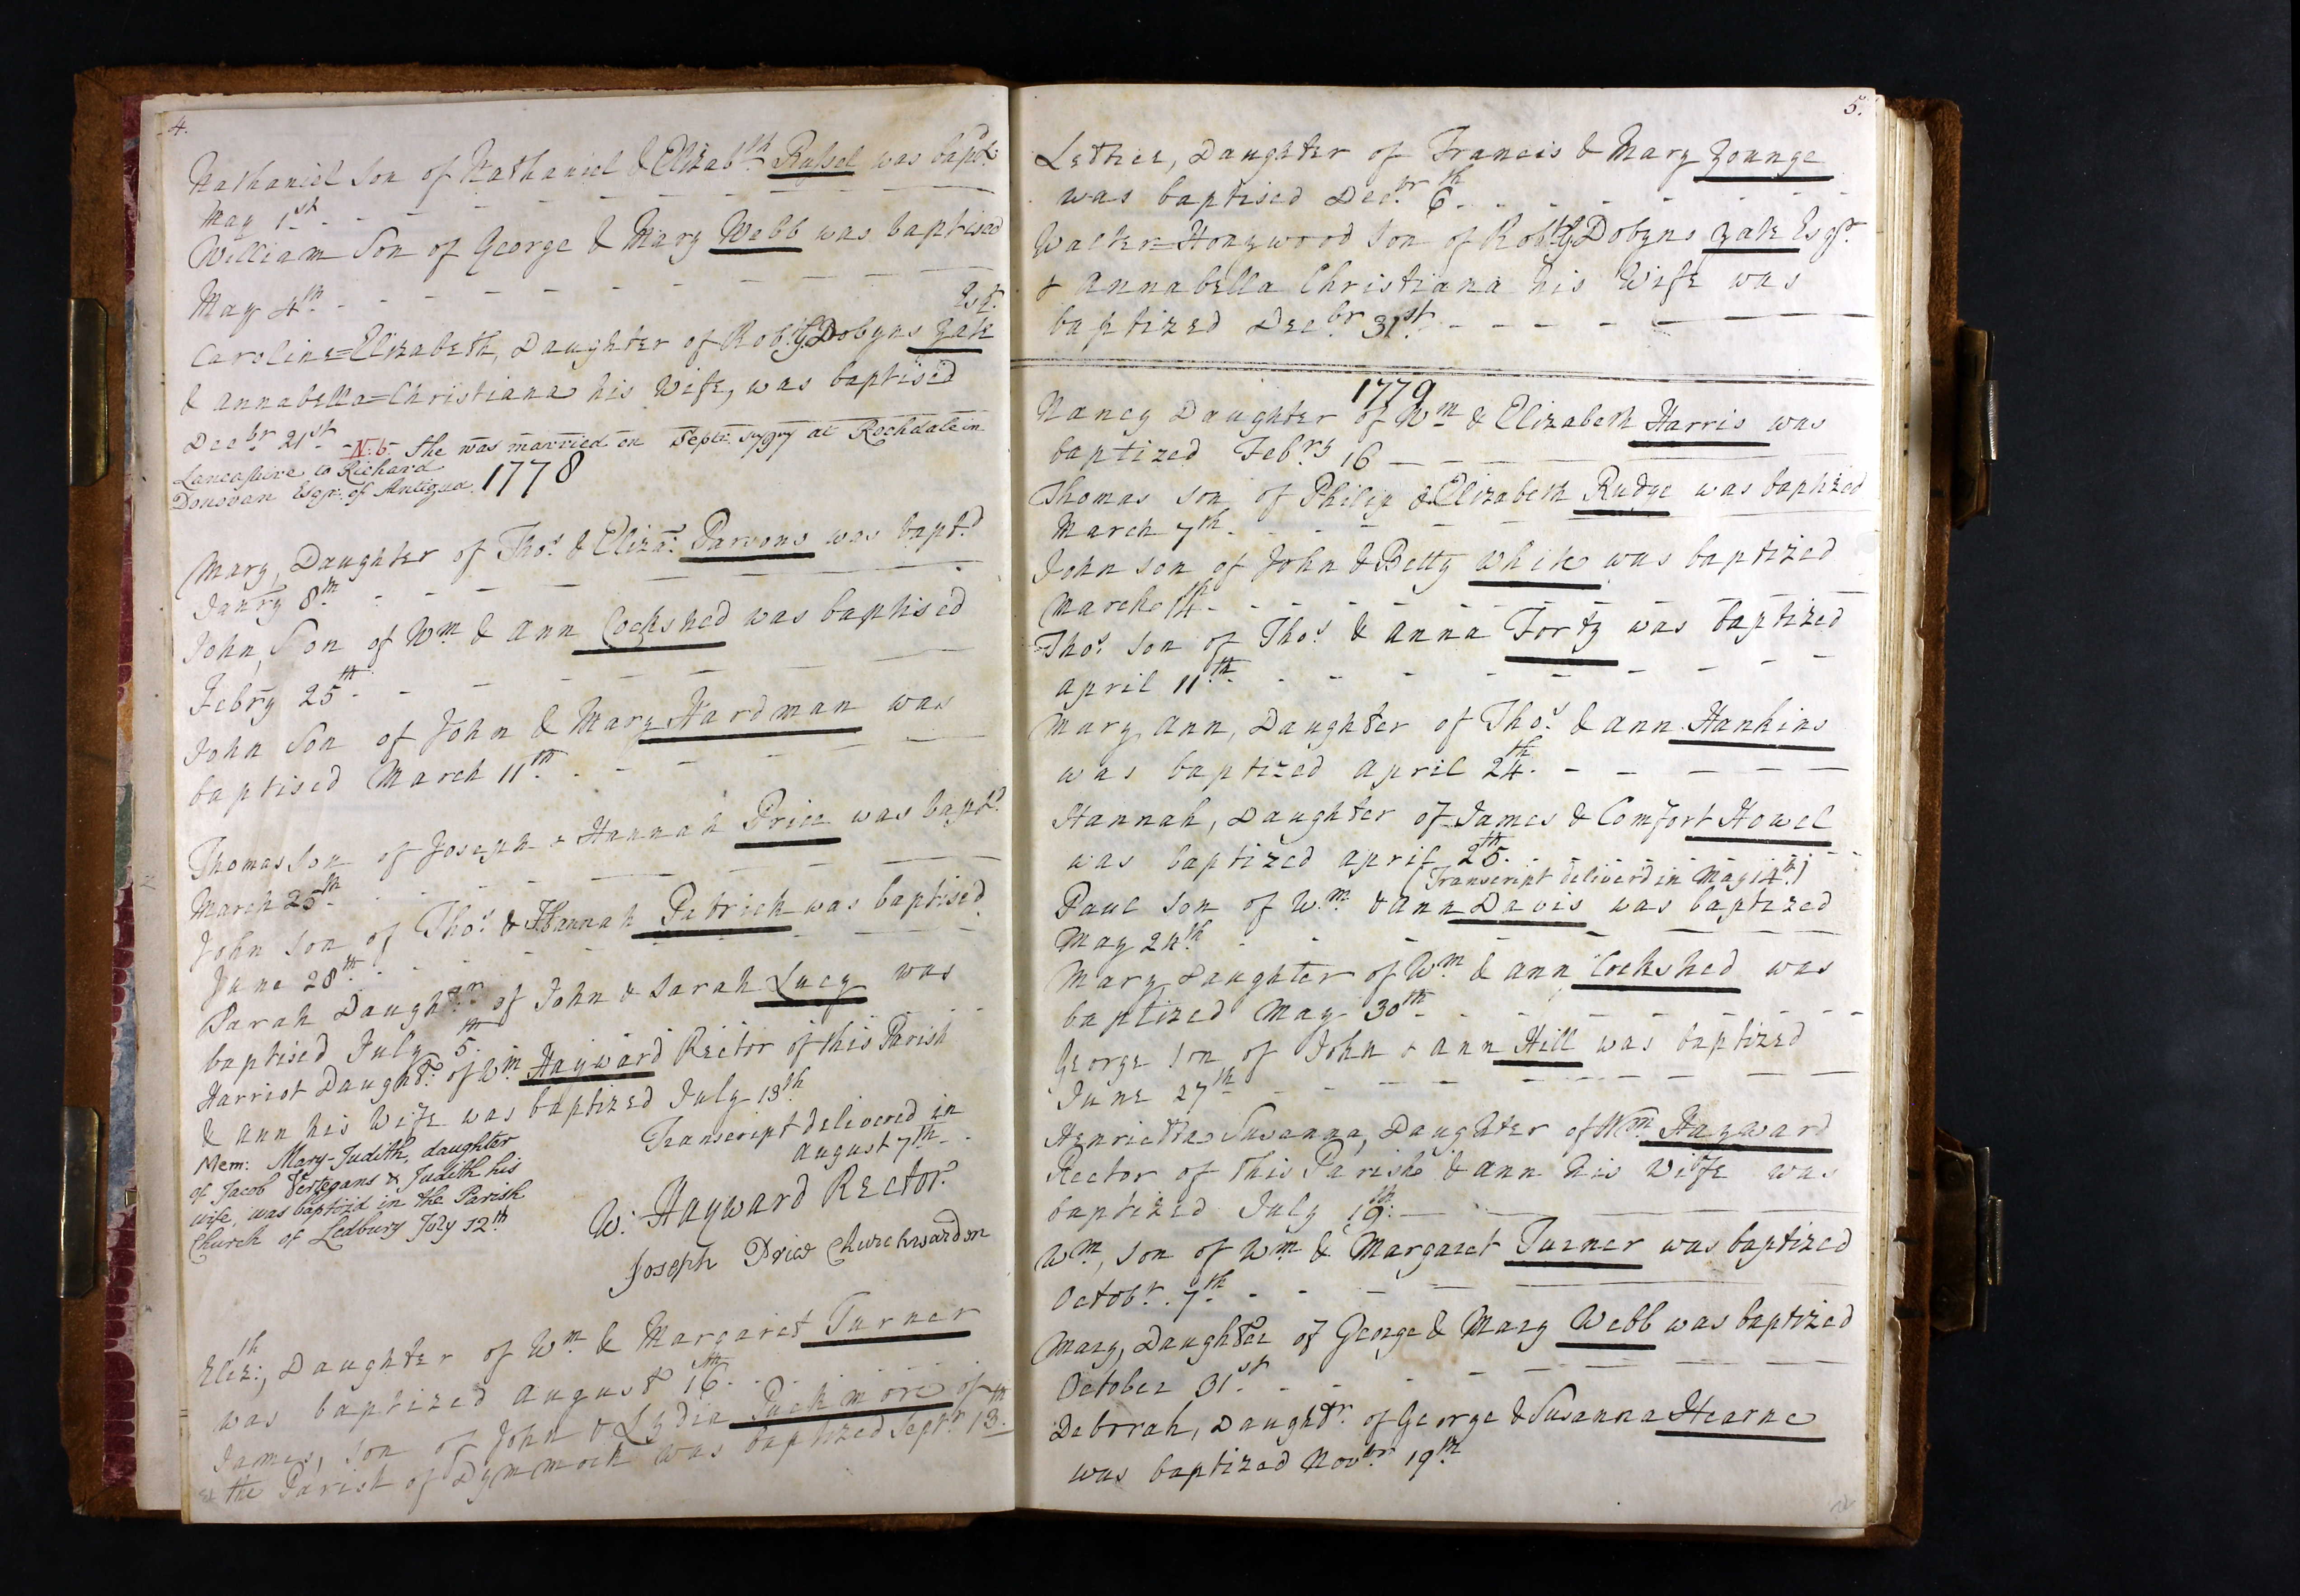 4.
Nathaniel Son of Nathaniel & Elizabth Russel was bapd:
May 1st
William Son of George & Mary Webb was baptised
May 4th
Esqr.
Caroline=Elizabeth, Daughter of Robt. G. Dobyns Yate
& Annabella=Christiana his Wife, was baptised
Decbr 21st - N:b. She was married on Septr. 1797 at Rochdale in
Lancashire to Richard
Donovan Esqr: of Antigua.
1778
Mary, Daughter of Thos. & Eliza: Parsons was bapt.d
Janry 8th
John, Son of Wm & Ann Cockshed was baptised
Febry 25th
John Son of John & Mary Hardman was
baptised March 11th
Thomas Son of Joseph & Hannah Price was bapt.d
March 25th
John Son of Thos. & Hannah Petrich was baptised
June 28th
Sarah Daughtr of John & Sarah Lucy was
baptised July 5th
Harriot Daughtr: of Wm Hayward Rector of this Parish
& Ann his Wife was baptized July 13th
Transcript delivered in
August 7th
Mem: Mary-Judith, daughter
of Jacob Vertegans & Judith his
wife, was baptiz'd in the Parish
Church of Ledbury July 12th
W: Hayward Rector.
Joseph Price Churchwarden
Elizth:, Daughter of Wm & Margaret Turner
was baptized August 16th
James, Son of John & Lydia Puckmore of
the Parish of Dymmock was baptized Septr. 13th
5.
Lettice, Daughter of Francis & Mary Younge
was baptised Decbr 6th
Walter=Honywood Son of Robt. G. Dobyns Yate Esqr.
& Annabella Christiana his Wife was
baptized Decbr 31st
1779
Nancy Daughter of Wm & Elizabeth Harris was
baptized Febry 16
Thomas Son of Philip & Elizabeth Rudge was baptized
March 7th
John Son of John & Betty White was baptized
March 14th
Thos. Son of Thos. & Anna Forty was baptized
April 11th
Mary Ann, Daughter of Thos. & Ann Hankins
was baptized April 24th
Hannah, Daughter of James & Comfort Howel
was baptized April 25th
(Transcript deliverd in May 14th)
Paul Son of Wm. & Ann Davis was baptized
May 24th
Mary Daughter of Wm & Ann Cockshed was
baptized May 30th
George Son of John & Ann Hill was baptized
June 27th
Henrietta Susanna, Daughter of Wm. Hayward
Rector of This Parish & Ann his Wife was
baptized July 19th
Wm, Son of Wm & Margaret Turner was baptized
Octobr. 7th
Mary, Daughter of George & Mary Webb was baptized
October 31st
Deborah, Daughtr. of George & Susanna Hearne
was baptized Novbr 19th